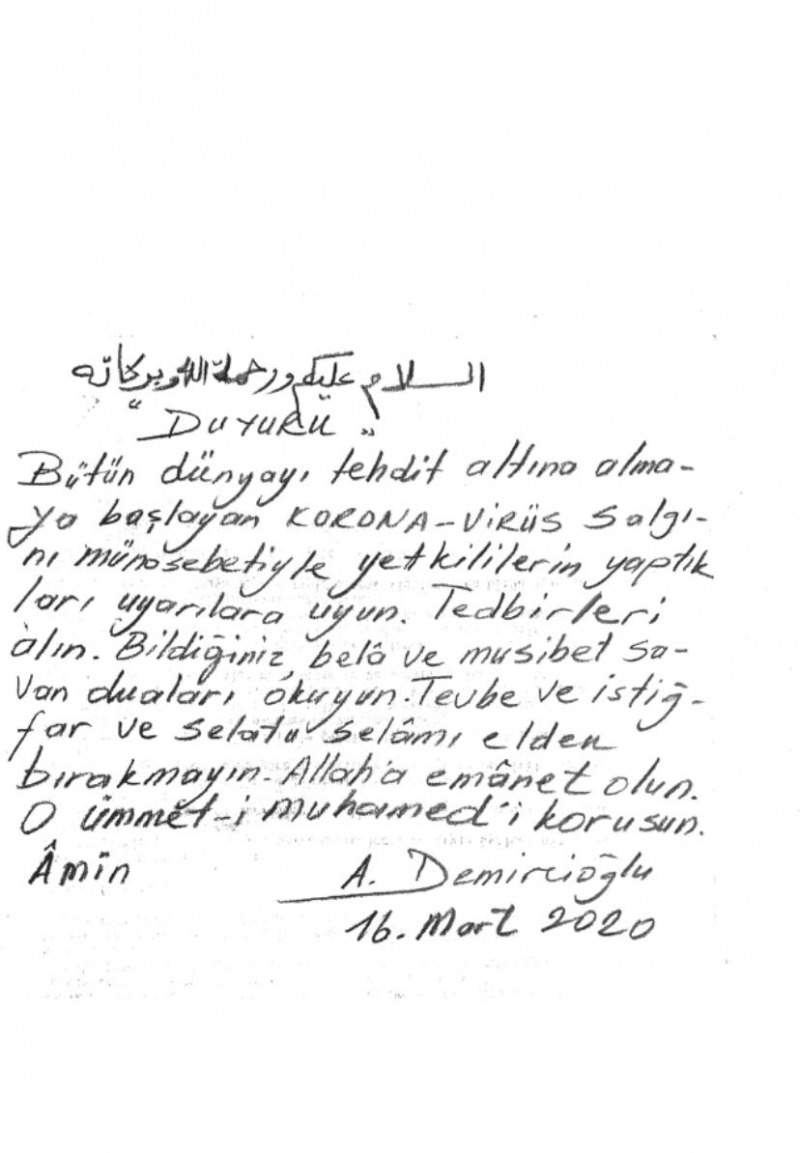 السلام عليكم ورحمة الله وبركاته
"DUYURU"
Bütün dünyayı tehdit altına alma-
ya başlayan KORONA-VİRÜS Salgı-
nı münasebetiyle yetkililerin yaptık
ları uyarılara uyun. Tedbirleri
alın. Bildiğiniz, belâ ve musibet sa-
van duaları okuyun. Tevbe ve istiğ-
far ve selatu selâmı elden
bırakmayın. Allah'a emânet olun.
O ümmet-i Muhamed'i korusun.
Âmin A. Demircioğlu
16. Mart 2020